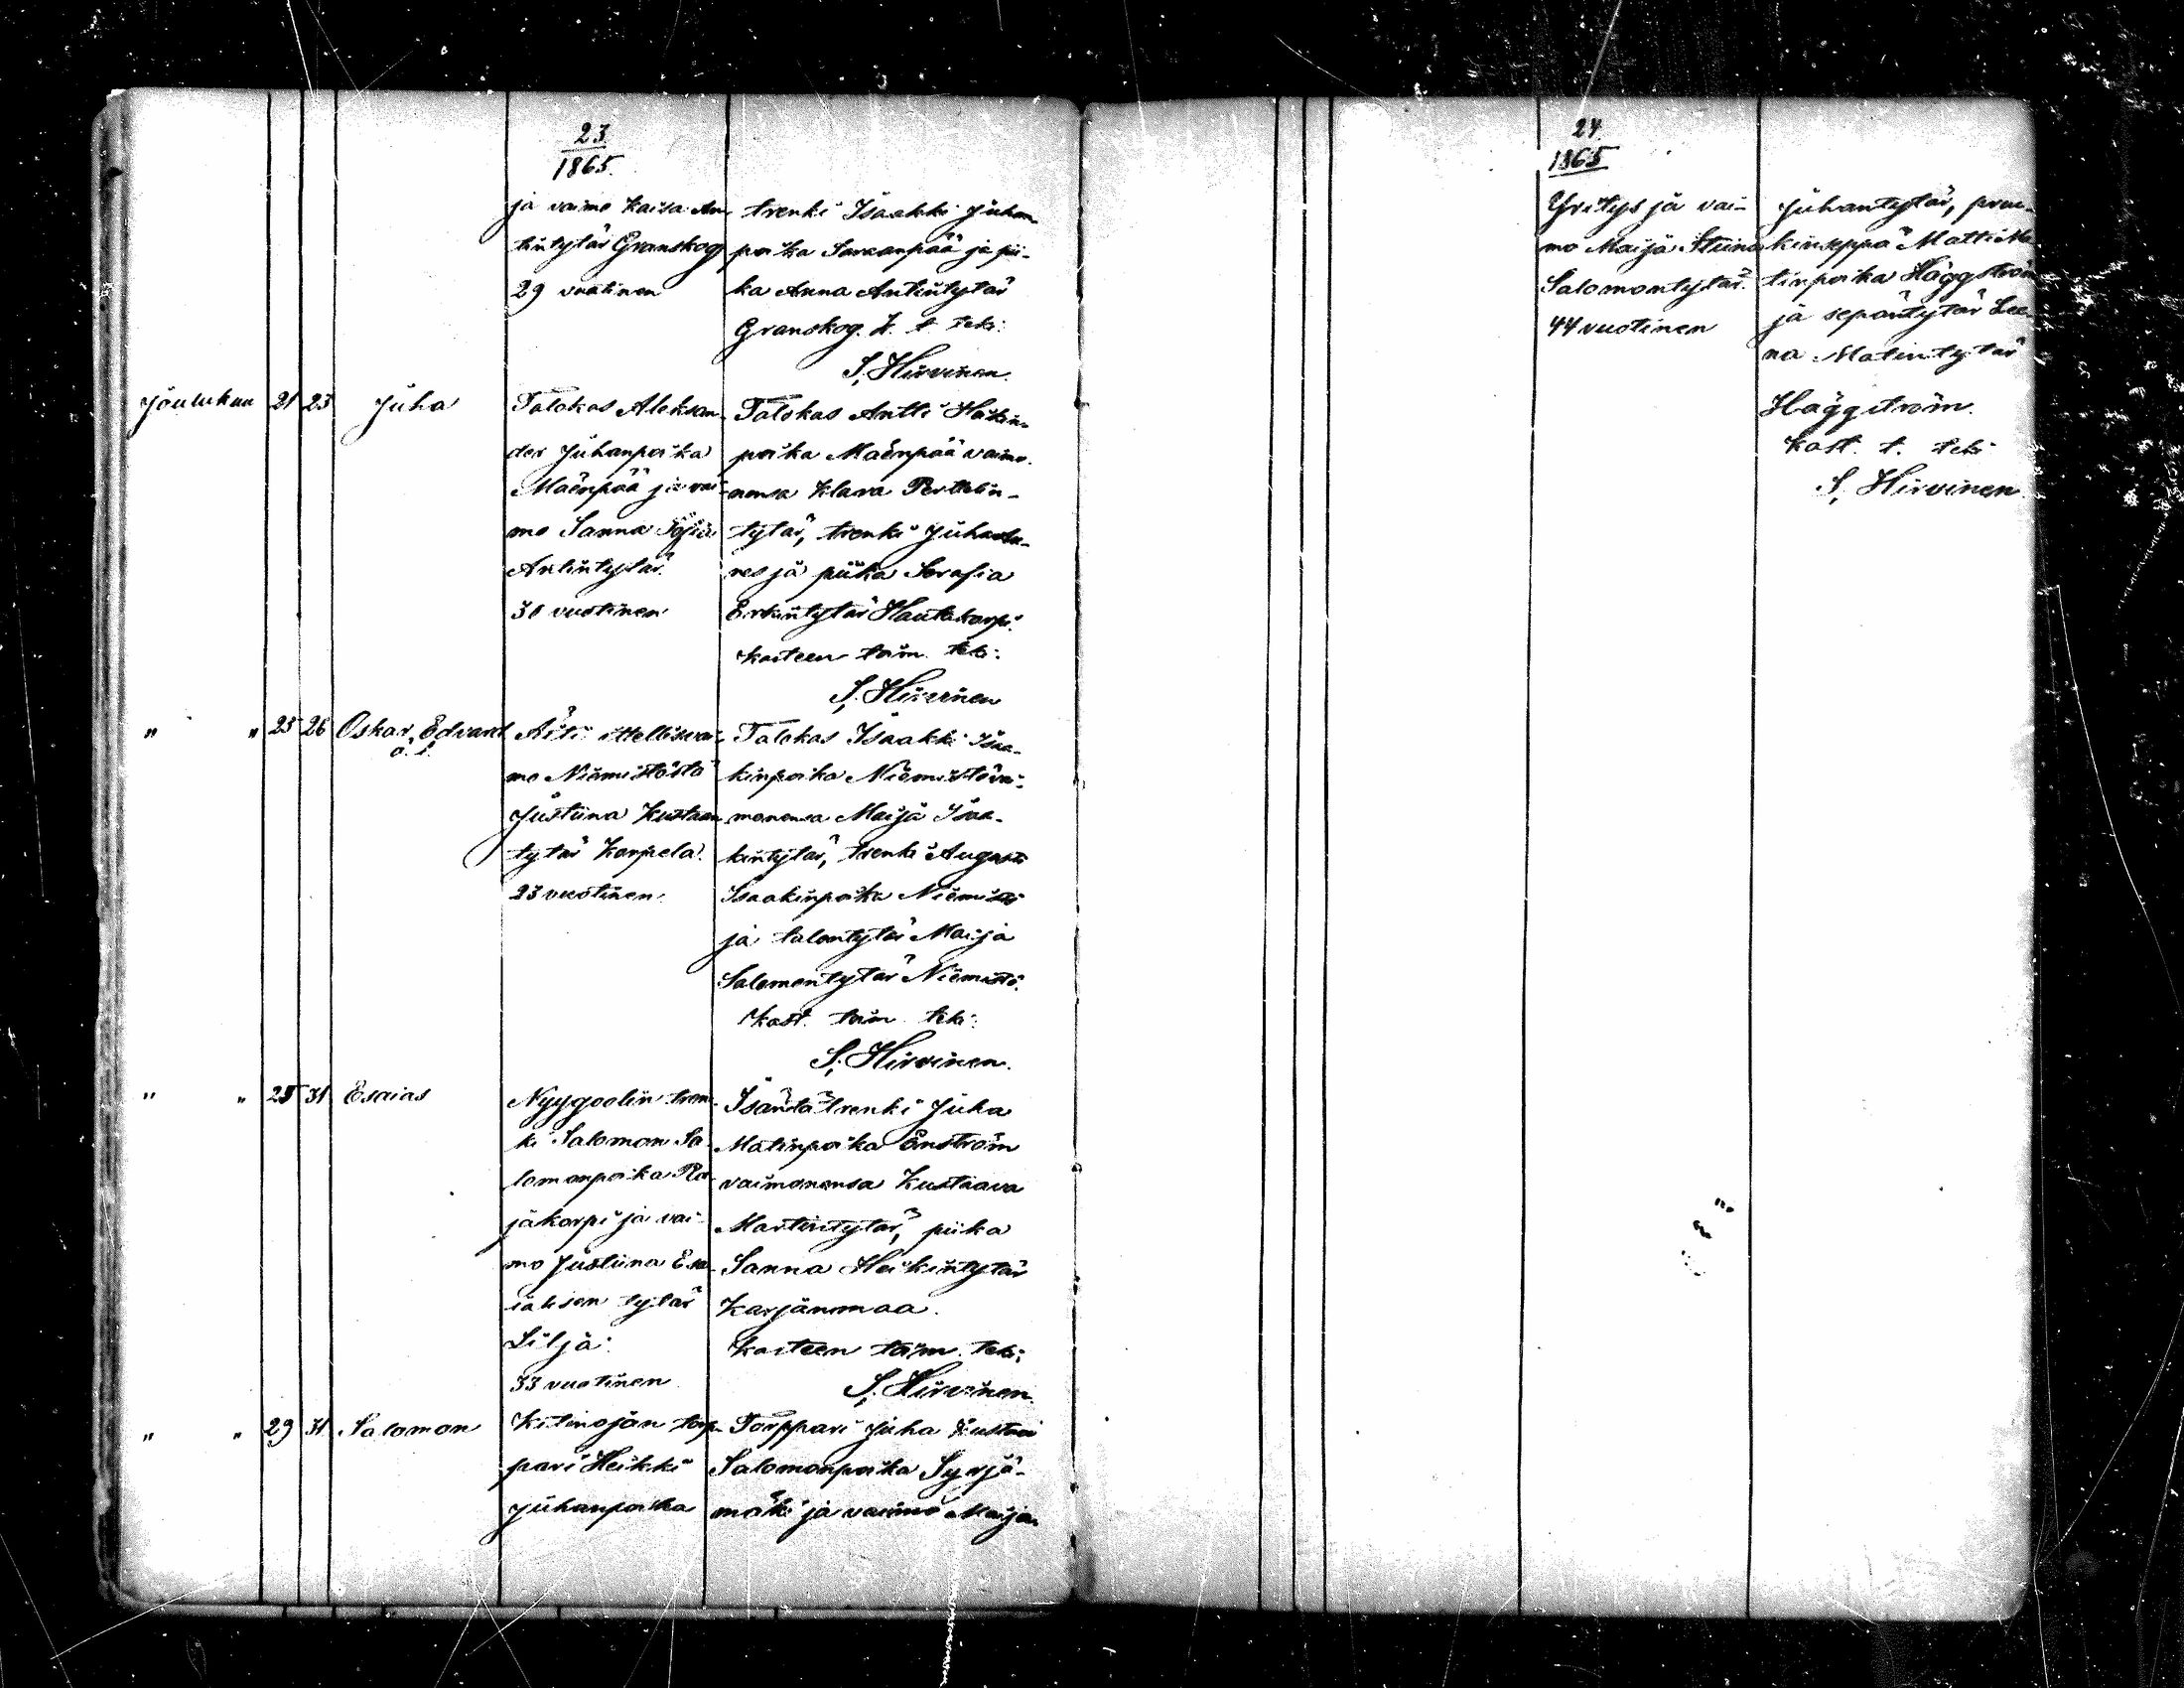 23
1865.
ja vaimo Kaisa An-
tintytär Granskog
29 vuotinen
trenki Isaakki Juhan
poika Savaanpää ja pii-
ka Anna Antintytär
Granskog. K. t. teki:
S. Hirvinen.
Joulukuu 21 23 Juha
Talokas Aleksan-
der Juhanpoika
Mäenpää ja vai-
mo Sanna Sofia
Antintytär.
30 vuotinen
Talokas Antti Heikin-
poika Mäenpää vaimo-
nensa Klara Perttelin-
tytär, trenki Juha
ja piika Serafia
Erkintytär Hautakorpi.
Kasteen toim. teki:
S. Hirvinen
" " 25 26 Oskar Edvard
ä. l.
Äiti itsellisvai-
mo Niemistöstä
Justiina Kustaan
tytär Korpela.
23 vuotinen
Talokas Isaakki Isaa-
kinpoika Niemistö vai-
monensa Maija Isaa-
kintytär, trenki August
Isaakinpoika Niemistö
ja talontytär Maija
Salomontytär Niemistö.
Kast. toim. teki:
S. Hirvinen.
" " 25 31 Esaias
Nyygoolin tren-
ki Salomon Sa-
lomonpoika Ra-
jakorpi ja vai-
mo Justiina Esa-
iaksen tytär
Lilja.
33 vuotinen
Isäntätrenki Juha
Matinpoika Enström
vaimonensa Kustaava
Martintytär, piika
Sanna Heikintytär
Karjanmaa.
Kasteen toim. teki;
S. Hirvinen.
" " 29 31 Salomon
Kitinojan torp-
pari Heikki
Juhanpoika
Torppari Juha Kustaa
Salomonpoika Syrjä-
mäki ja vaimo Maija
24
1865
Yritys ja vai-
mo Maija Stiina
Salomontytär.
44 vuotinen
Juhantytär, pruu-
kinseppä Matti Ma-
tinpoika Häggström
ja sepäntytär Lee-
na Matintytär
Häggström.
Kast. t. teki
S. Hirvinen